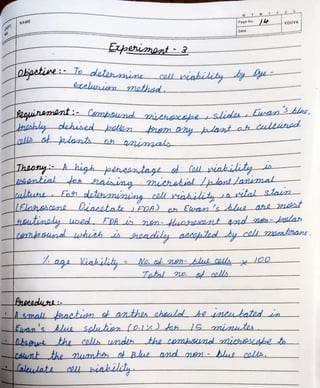 NAME
M T W T F S S
Page No.: 14
YOUVA
Date:
Experiment - 3
Objective :- To determine cell viability by Dye -
exclusion method.
Requirement :- Compound microscope, slides, Evan's blue,
freshly dehised pollen from any plant or cultured
cells of plants or animals.
Theory :- A high percentage of Cell viability is
essential for raising microbial / plant / animal
culture. For determining cell viability, a vital stain
(Fluroscene Diacetate, FDA) or Evan's blue are most
routinely used. FDA is non-fluorescent and non-polar
compound which is readily accepted by cell membrane.
% age Viability = No. of non-blue cells × 100
Total no. of cells
Procedure :-
A small fraction of anther should be incubated in
Evan's blue solution (0.1%) for 15 minutes.
Observe the cells under the compound microscope to
count the number of Blue and non-blue cells.
Calculate cell viability.